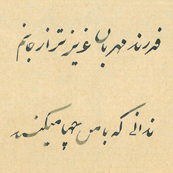 فرزند مهربان عزیزتر از جانم
ندانی که با من چها میکنند